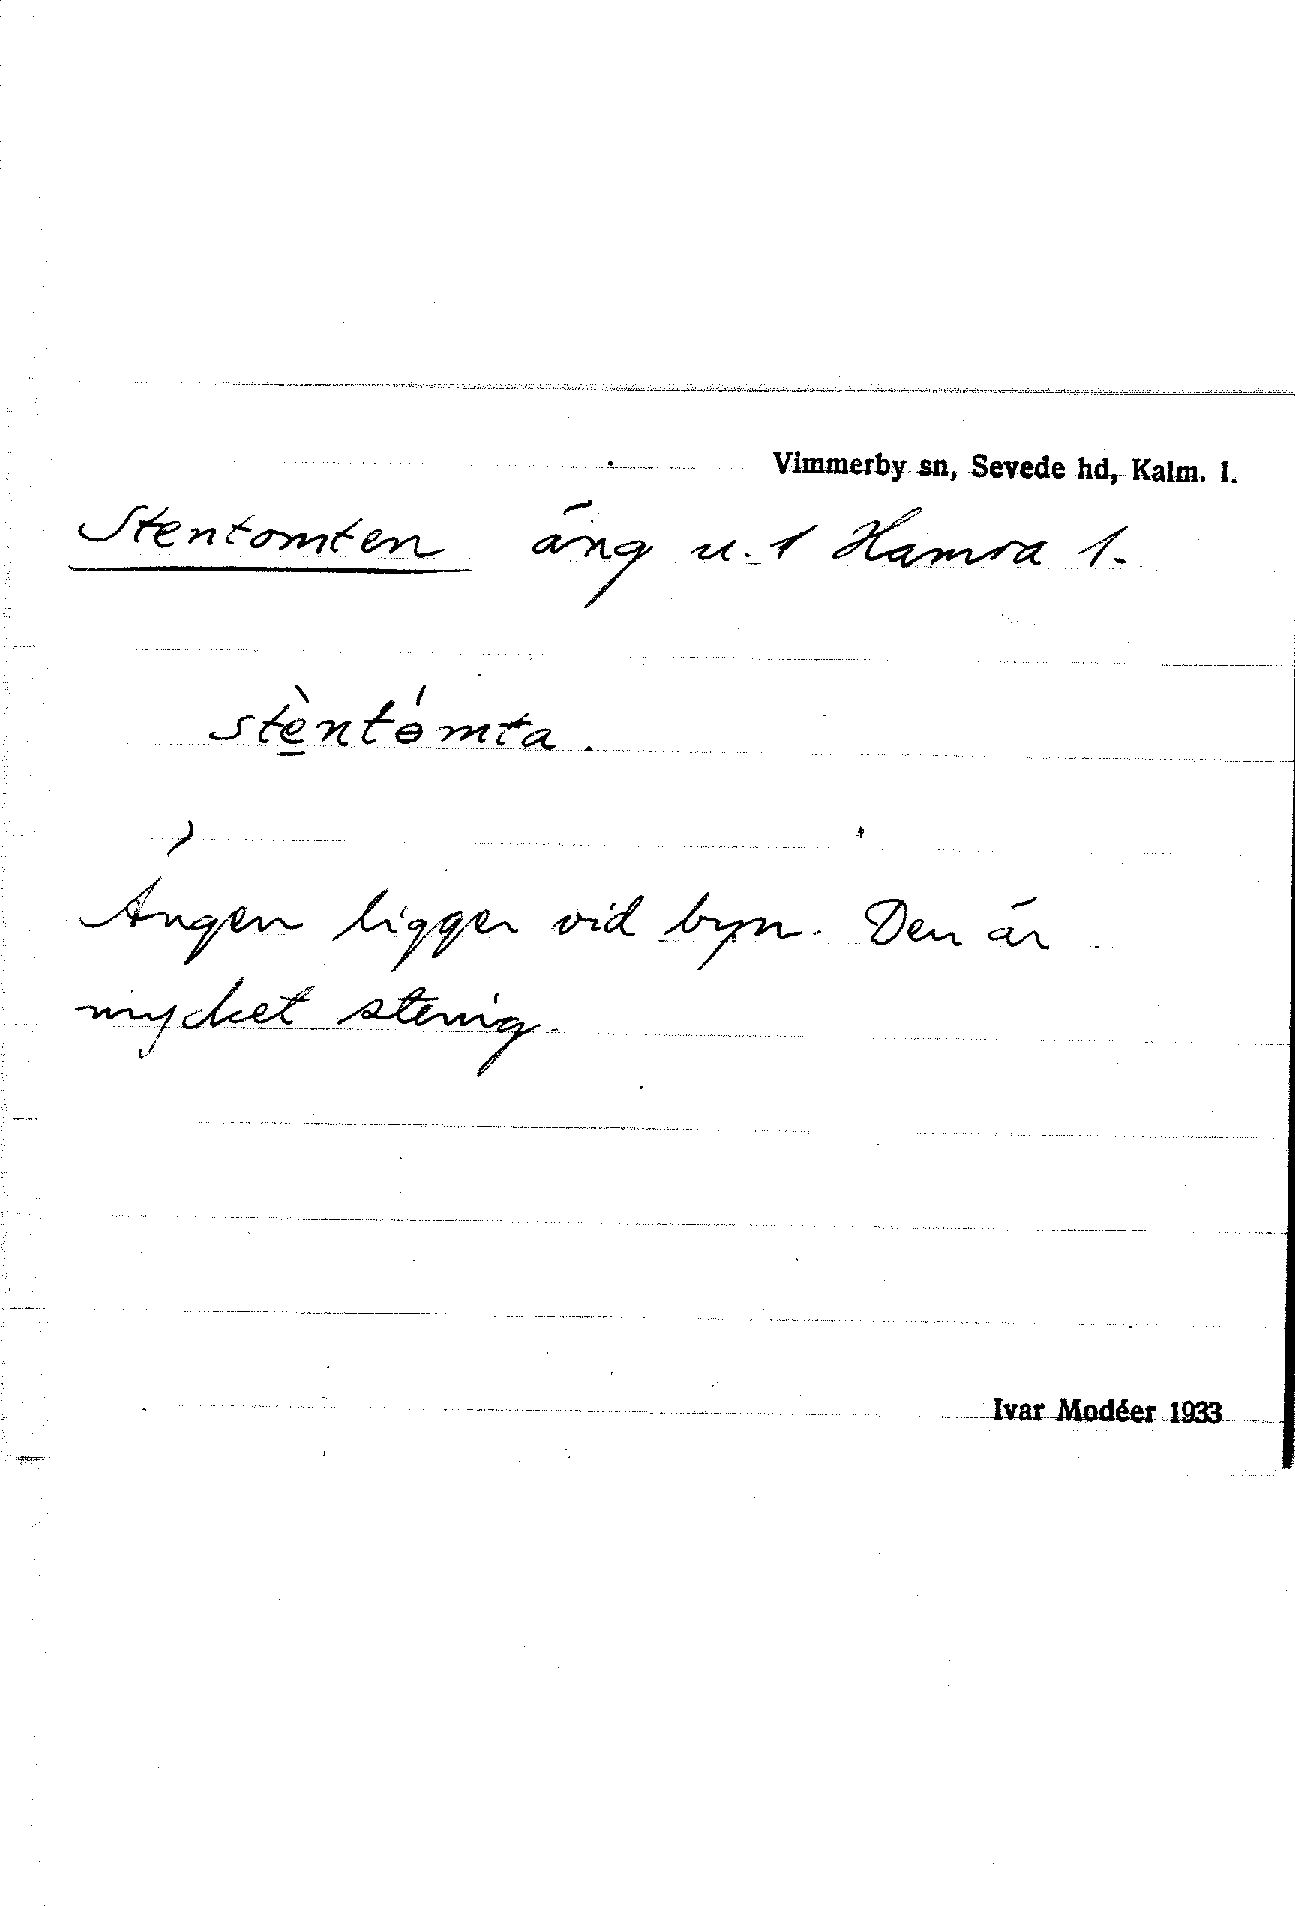 Vimmerby sn, Sevede hd, Kalm. l.
Stentomten äng u. 1 Hamra 1.
stèntómta.
Ängen ligger vid byn. Den är
mycket stenig.
Ivar Modéer 1933